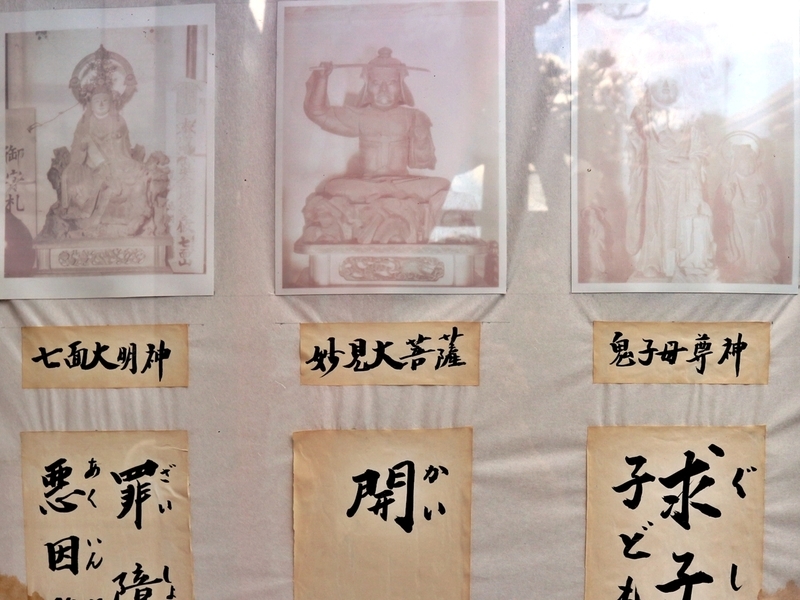 御宝札
七面大明神
妙見大菩薩
鬼子母尊神
罪障
ざいしょ
悪因
あくいん
開
かい
求子
ぐし
子ども